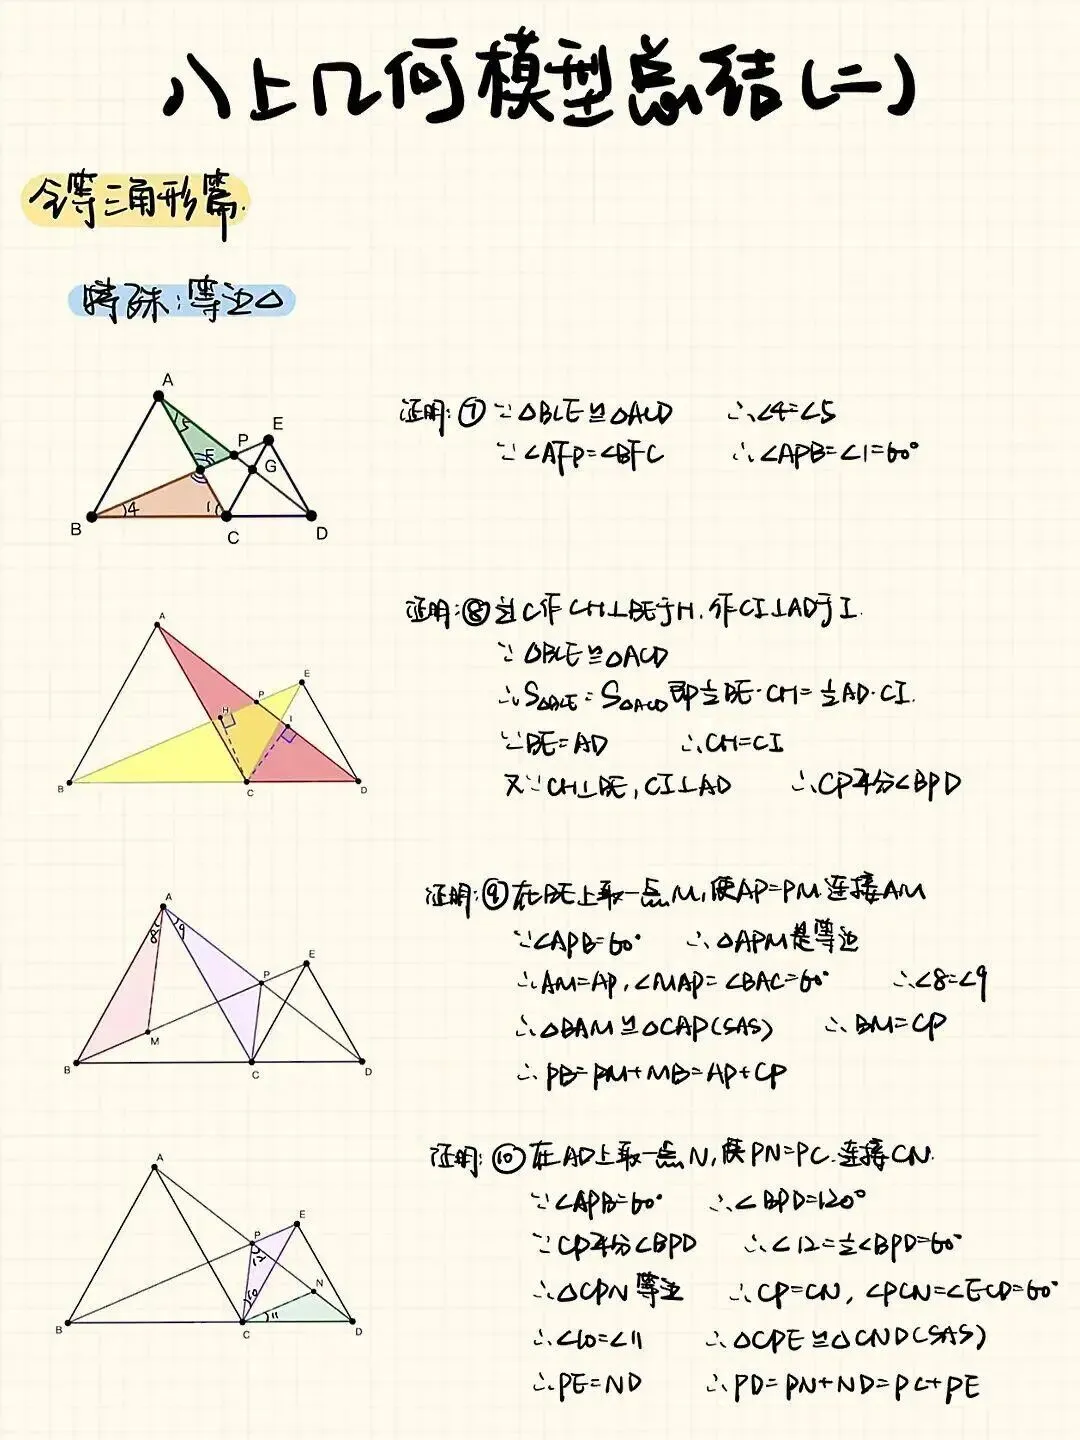 八上几何模型总结(二)
全等三角形篇.
特殊:等边△
A
E
P
5
F
G
B
4
1
C
D
证明:⑦∵△BCE≌△ACD ∴∠4=∠5
∵∠AFP=∠BFC ∴∠APB=∠1=60°
A
E
P
H
I
B
C
D
证明:⑧过C作CH⊥BE于H,作CI⊥AD于I.
∵△BCE≌△ACD
∴S△BCE=S△ACD即½BE·CH=½AD·CI.
∵BE=AD ∴CH=CI
又∵CH⊥BE,CI⊥AD ∴CP平分∠BPD
A
8
9
E
P
M
B
C
D
证明:⑨在BE上取一点M,使AP=PM.连接AM
∵∠APB=60° ∴△APM是等边
∴AM=AP,∠MAP=∠BAC=60° ∴∠8=∠9
∴△BAM≌△CAP(SAS) ∴BM=CP
∴PB=PM+MB=AP+CP
A
E
P
12
N
10
11
B
C
D
证明:⑩在AD上取一点N,使PN=PC.连接CN.
∵∠APB=60° ∴∠BPD=120°
∵CP平分∠BPD ∴∠12=½∠BPD=60°
∴△CPN等边 ∴CP=CN,∠PCN=∠ECD=60°
∴∠10=∠11 ∴△CPE≌△CND(SAS)
∴PE=ND ∴PD=PN+ND=PC+PE